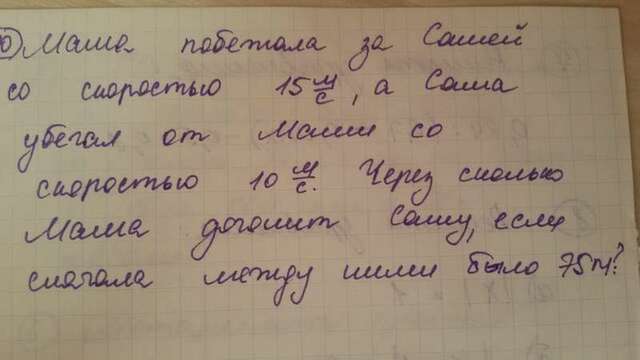 0) Маша побежала за Сашей
со скоростью 15 м/с, а Саша
убегал от Маши со
скоростью 10 м/с. Через сколько
Маша догонит Сашу, если
сначала между ними было 75м?